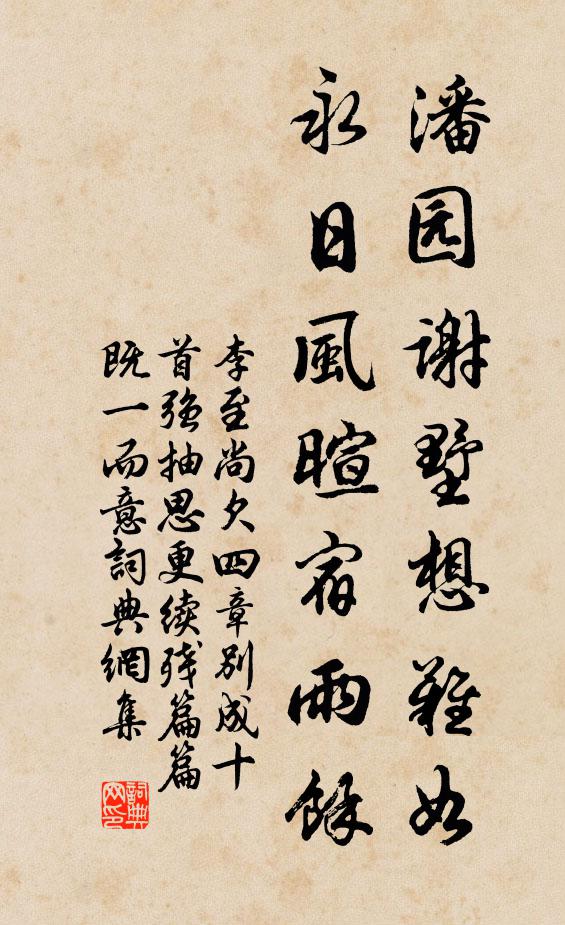 潘园谢墅想難如
永日風暄宿雨餘
李至尚欠四章别成十
首强抽思更续残篇篇
既一而意詞典網集
詞典
网印